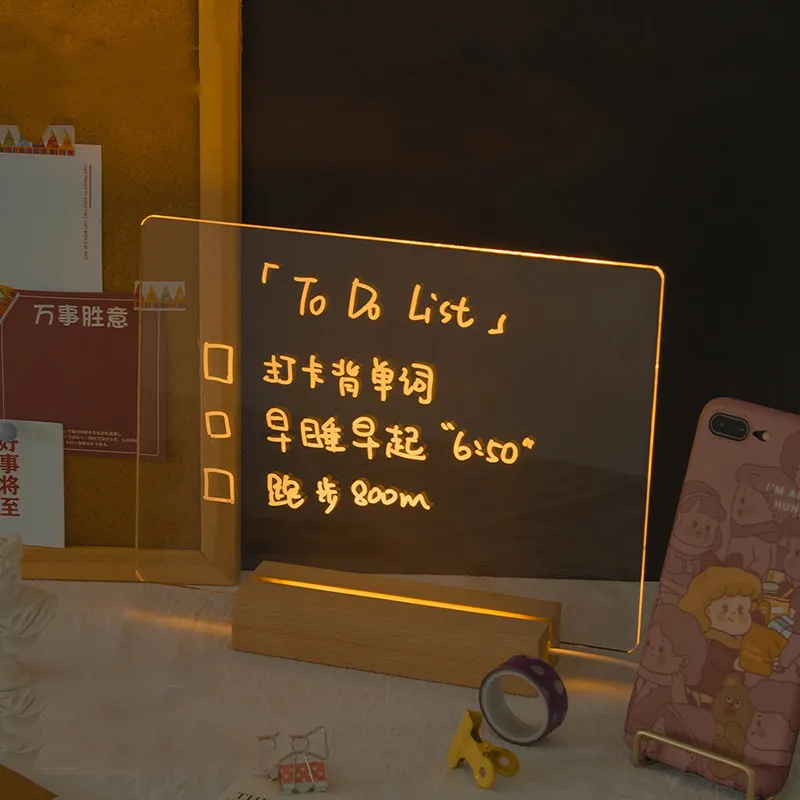 「To Do List」
打卡背单词
早睡早起“6:50”
跑步800m
万事胜意
好事将至
I'M A
HUN
TH